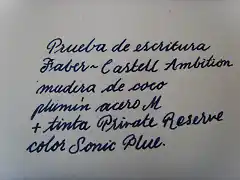 Prueba de escritura
Faber~Castell Ambition
madera de coco
plumín acero M
+ tinta Private Reserve
color Sonic Blue.